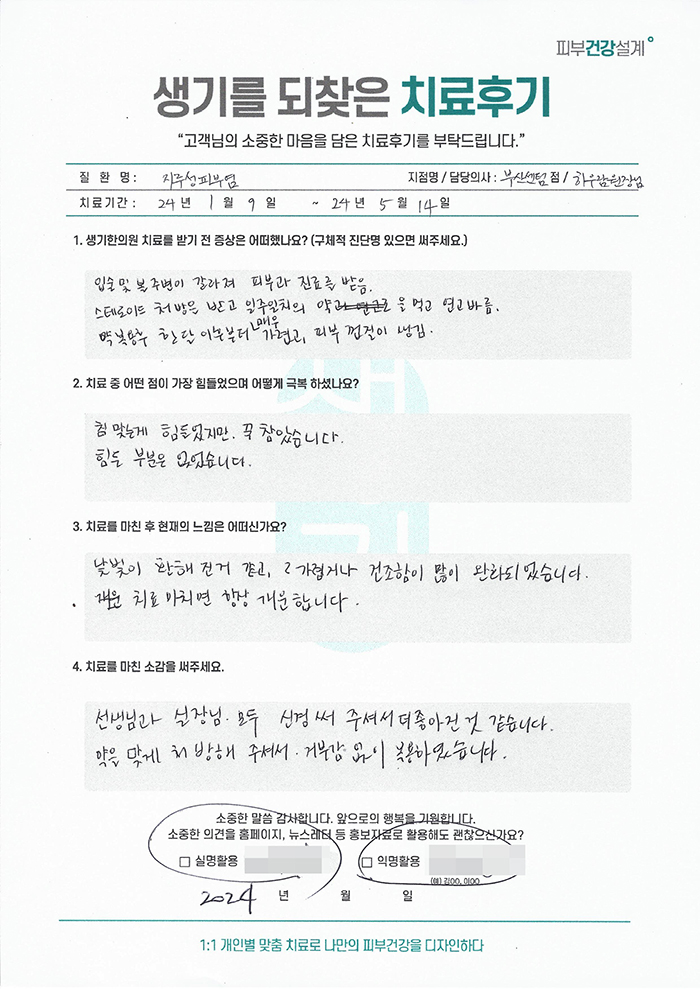 피부건강설계
생기를 되찾은 치료후기
“고객님의 소중한 마음을 담은 치료후기를 부탁드립니다.”
질 환 명 : 지루성피부염 지점명 / 담당의사 : 부산센텀 점 / 하우람원장님
치료기간 : 24 년 1 월 9 일 ~ 24 년 5 월 14 일
1. 생기한의원 치료를 받기 전 증상은 어떠했나요? (구체적 진단명 있으면 써주세요.)
입술 및 볼 주변이 갈라져 피부과 진료를 받음.
스테로이드 처방을 받고 일주일치의 약을 먹고 연고바름.
복용후 한달 이후부터 매우 가렵고, 피부 껍질이 생김.
2. 치료 중 어떤 점이 가장 힘들었으며 어떻게 극복 하셨나요?
침 맞는게 힘들었지만. 꾹 참았습니다.
힘든 부분은 없었습니다.
3. 치료를 마친 후 현재의 느낌은 어떠신가요?
낯빛이 환해 진거 같고, 가렵거나 건조함이 많이 완화되었습니다.
치료 마치면 항상 개운합니다.
4. 치료를 마친 소감을 써주세요.
선생님과 실장님. 모두 신경써 주셔서 더좋아진 것 같습니다.
약을 맞게 처방해 주셔서. 거부감 없이 복용하였습니다.
소중한 말씀 감사합니다. 앞으로의 행복을 기원합니다.
소중한 의견을 홈페이지, 뉴스레터 등 홍보자료로 활용해도 괜찮으신가요?
실명활용 익명활용
(예) 김OO, 이OO
2024 년 월 일
1:1 개인별 맞춤 치료로 나만의 피부건강을 디자인하다